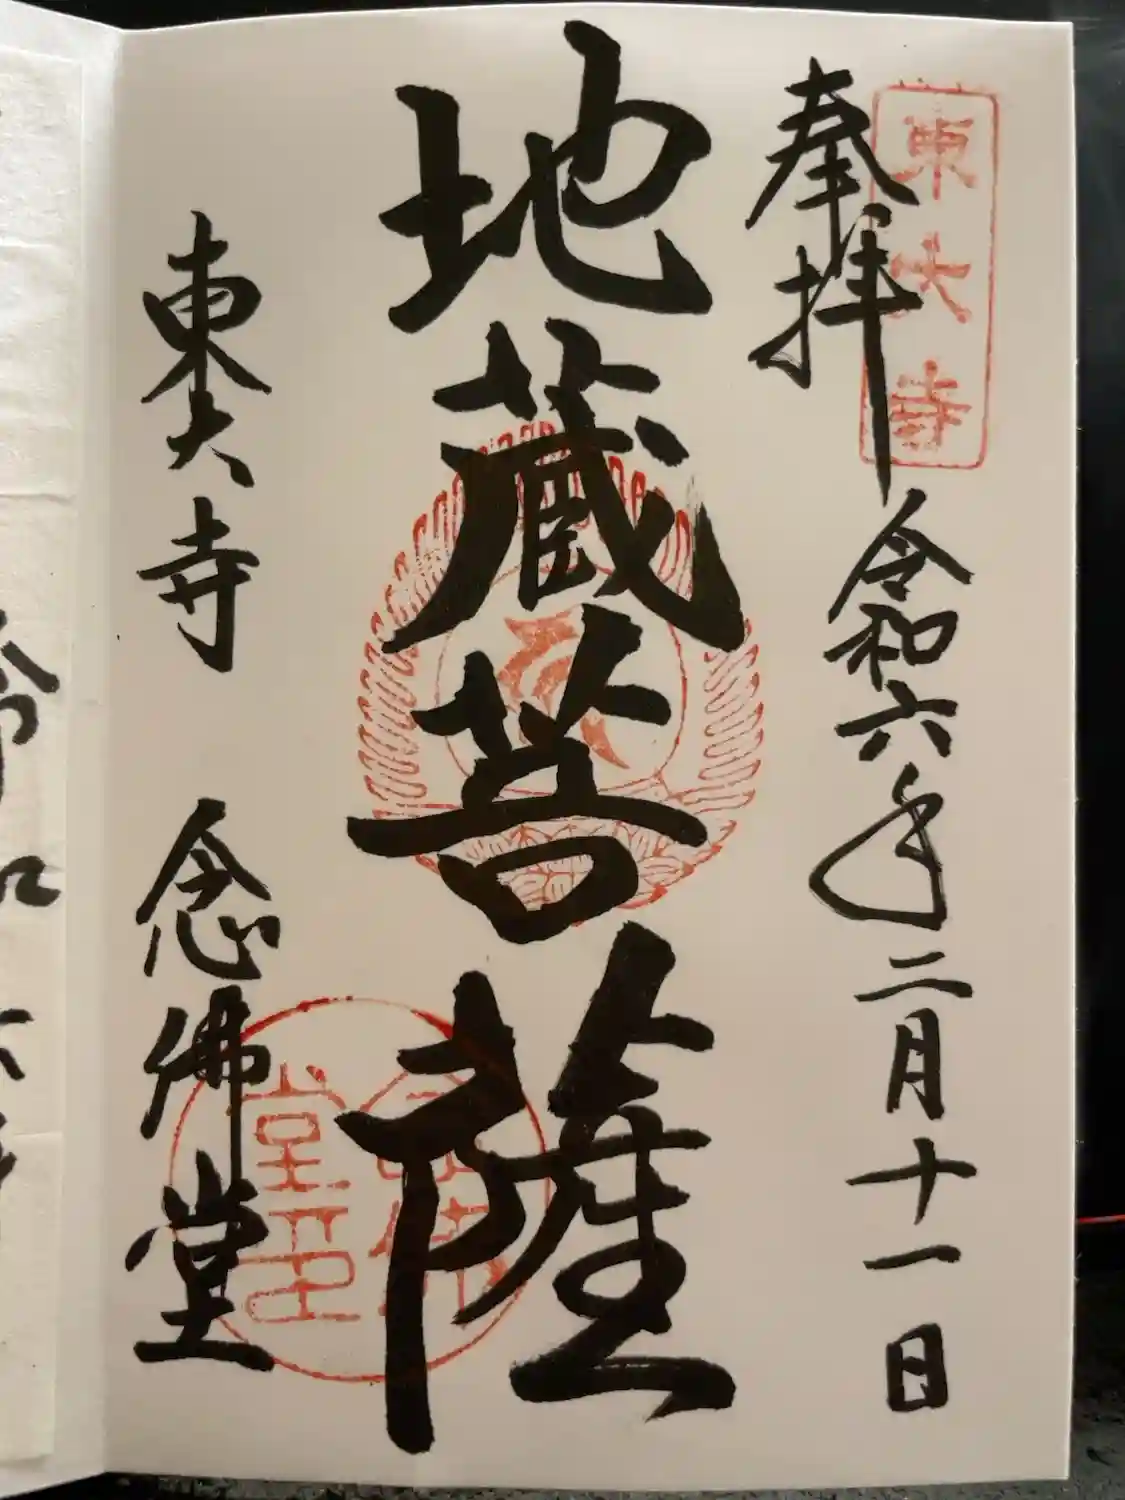 東大寺
奉拝 令和六年二月十一日
地蔵菩薩
東大寺 念佛堂
念佛堂印